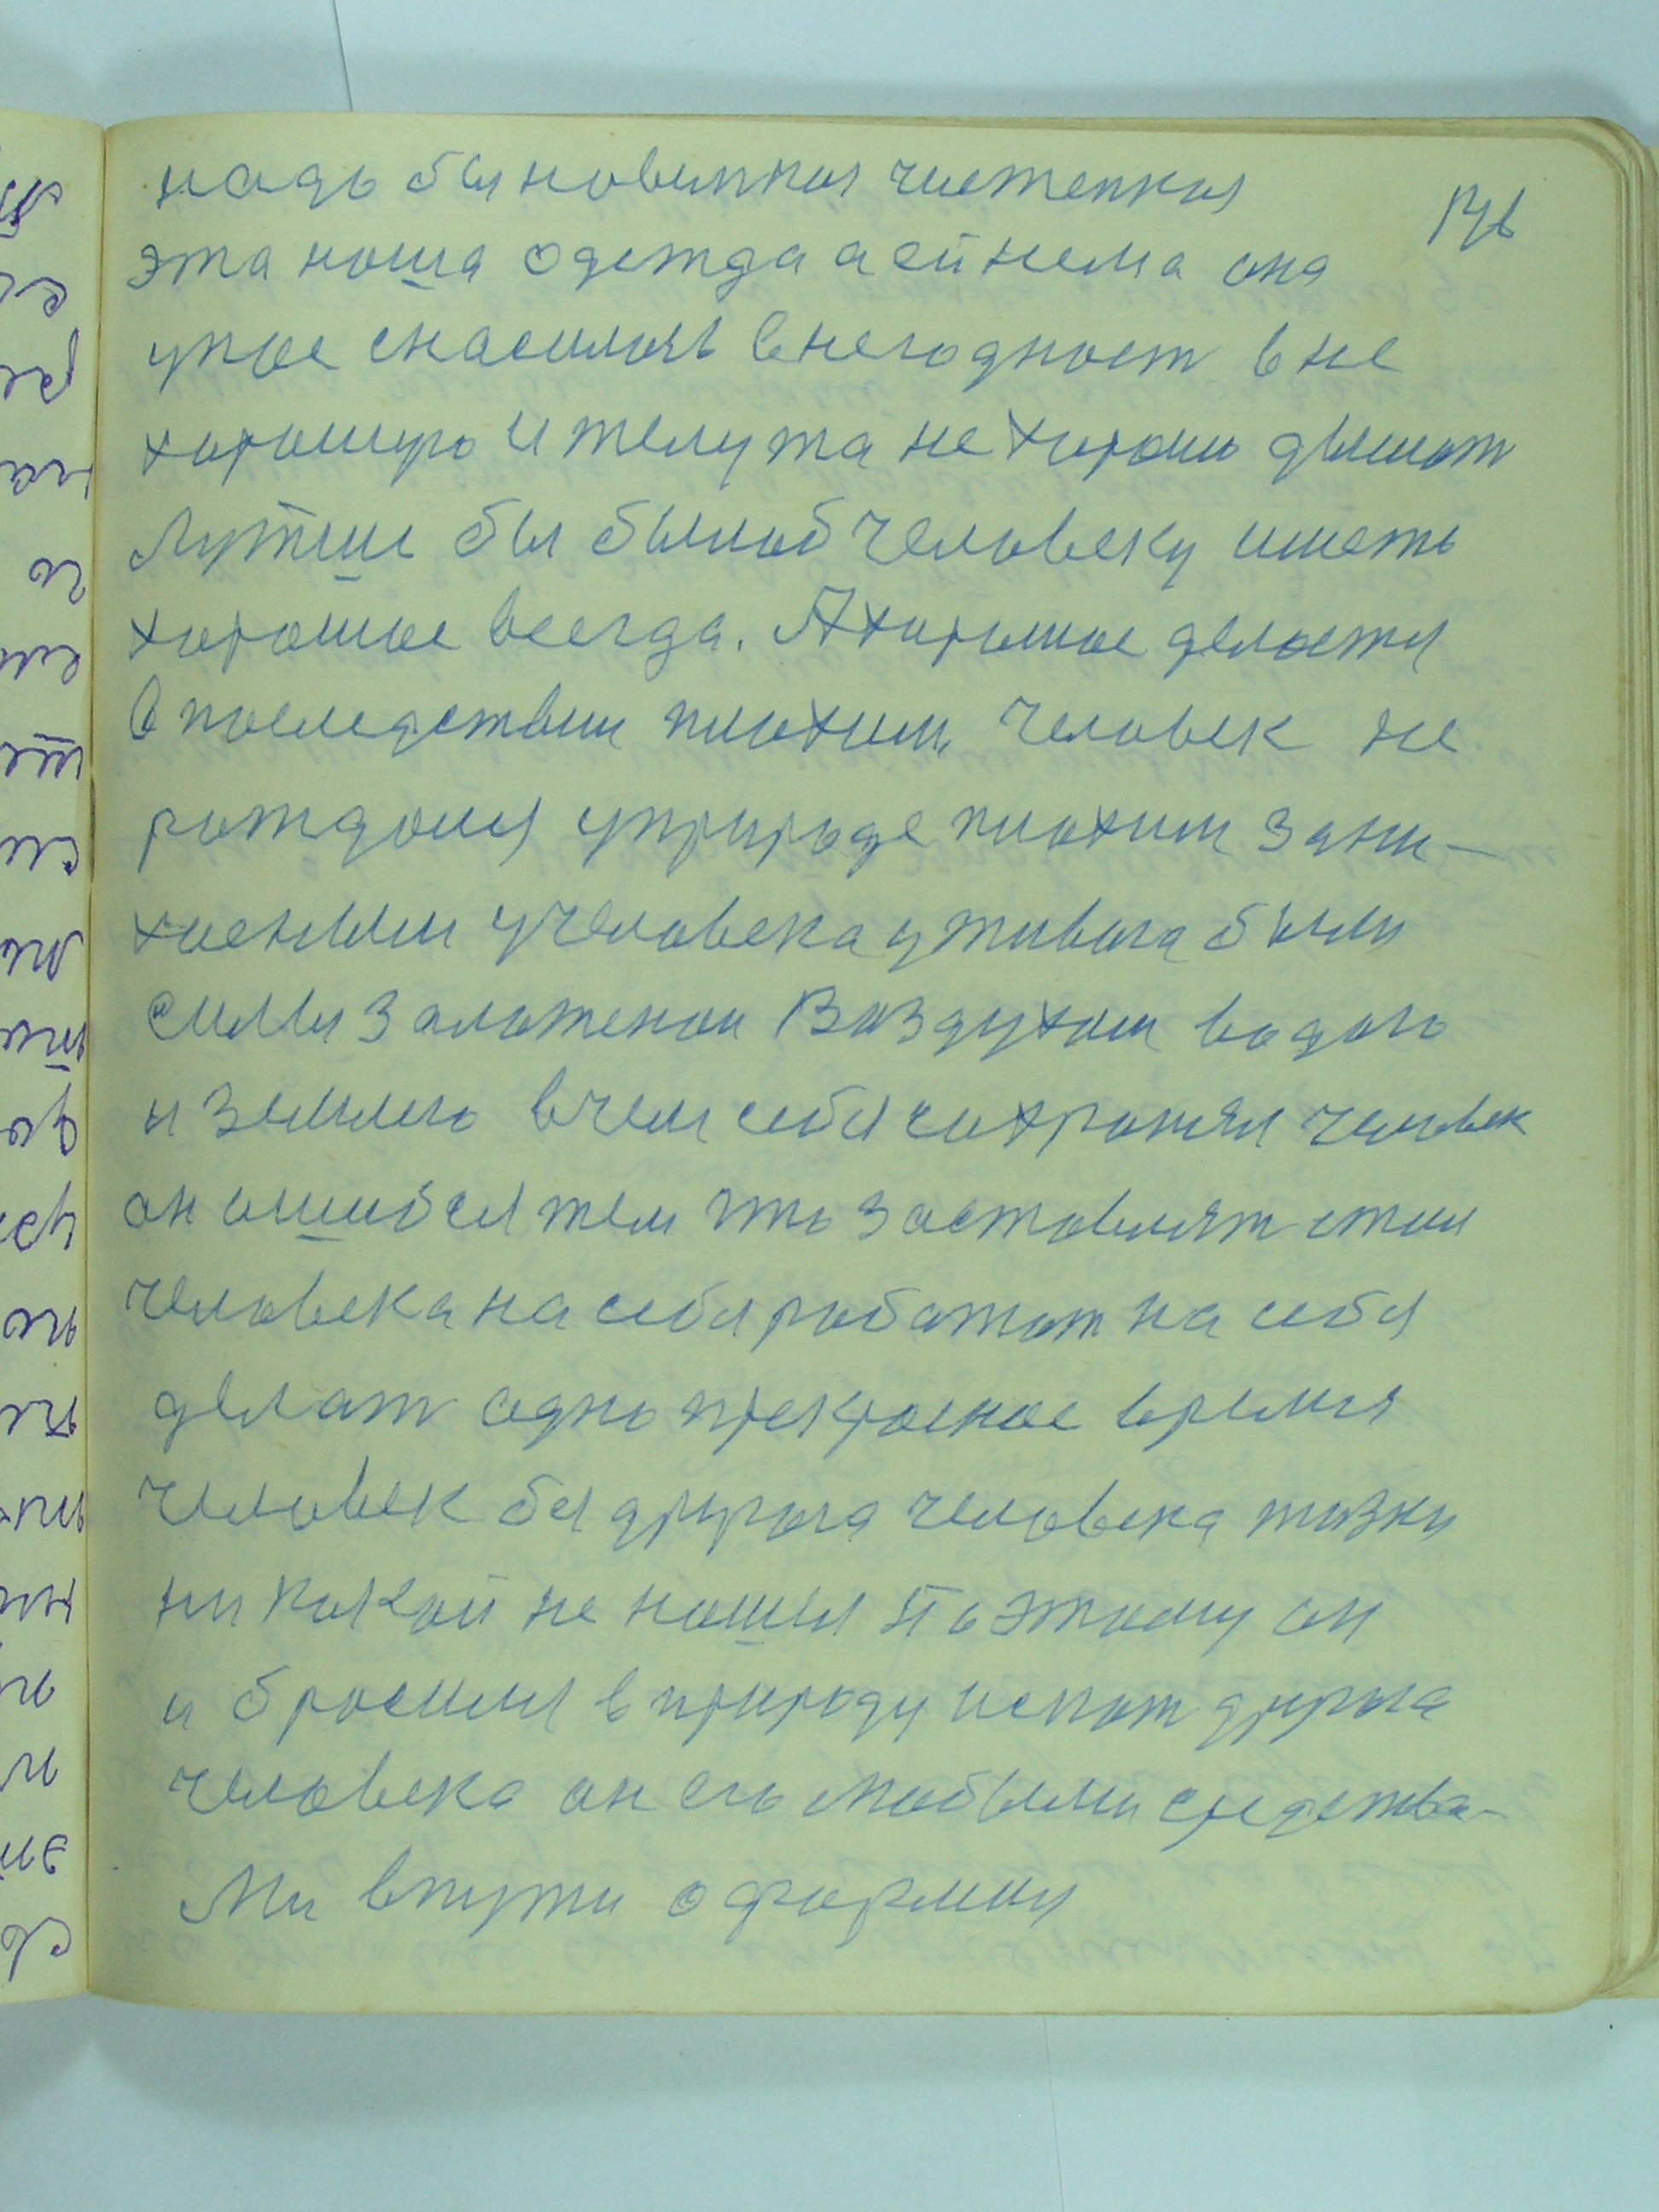 надо бы новинкая чистенкая
эта наша одежда а ей нема она
уже сносилась внегодност в не
хорошую и телу та не хорошо дышат
Лутше бы былоб человеку иметь
хорошое всегда. А хорошое делается
в последствии плохим, человек не
рождался уприроде плохим зати-
хаеными учеловека уживога были
силы заложенои Воздухом водою
и землею вчем себя сохранял человек
он ошибся тем что заставлят стал
человека на себя работат на себя
делат одно прекрасное время
человек бя другога человека жизни
ни какой не нашел Поэтому он
и бросился в природу искат другога
человека он его любыми средства-
Ми впути оформил